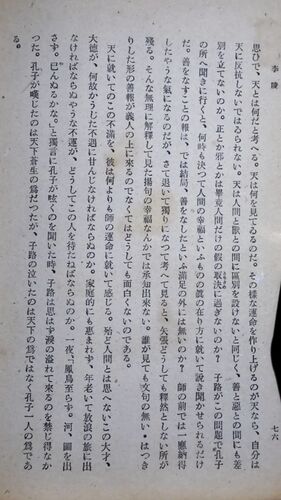 李陵
七六
思ひで、天とは何だと考へる。天は何を見てゐるのだ。その樣な運命を作り上げるのが天なら、自分は
天に反抗しないではゐられない。天は人間と獸との間に區別を設けないと同じく、善と惡との間にも差
別を立てないのか。正とか邪とかは畢竟人間だけの假の取決に過ぎないのか？　子路が此の問題で孔子
の所へ聞きに行くと、何時も決つて人間の幸福といふものの眞の在り方に就いて說き聞かせられるだけ
だ。善をなすことの報は、では結局、善をなしたといふ滿足の外には無いのか？　師の前では一應納得
したやうな氣になるのだが、さて退いて獨りになつて考へて見ると、矢張どうしても釋然としない所が
殘る。そんな無理に解釋して見た揚句の幸福なんかでは承知出來ない。誰が見ても文句の無い・はつき
りした形の善報が義人の上に來るのでなくては、どうしても面白くないのである。
天に就いてのこの不滿を、彼は何よりも師の運命に就いて感じる。殆ど人間とは思へないこの大才、
大德が、何故かうじた不遇に甘んじなければならぬのか。家庭的にも惠まれず、年老いて放浪の旅に出
なければならぬやうな不運が、どうしてこの人を待たねばならぬのか。一夜、「鳳鳥至らず。河、圖を出
さず。已んぬるかな。」と獨言に孔子が呟くのを聞いた時、子路は思はず淚の溢れて來るのを禁じ得なか
つた。孔子が嘆じたのは天下蒼生の爲だつたが、子路の泣いたのは天下の爲ではなく孔子一人の爲であ
る。